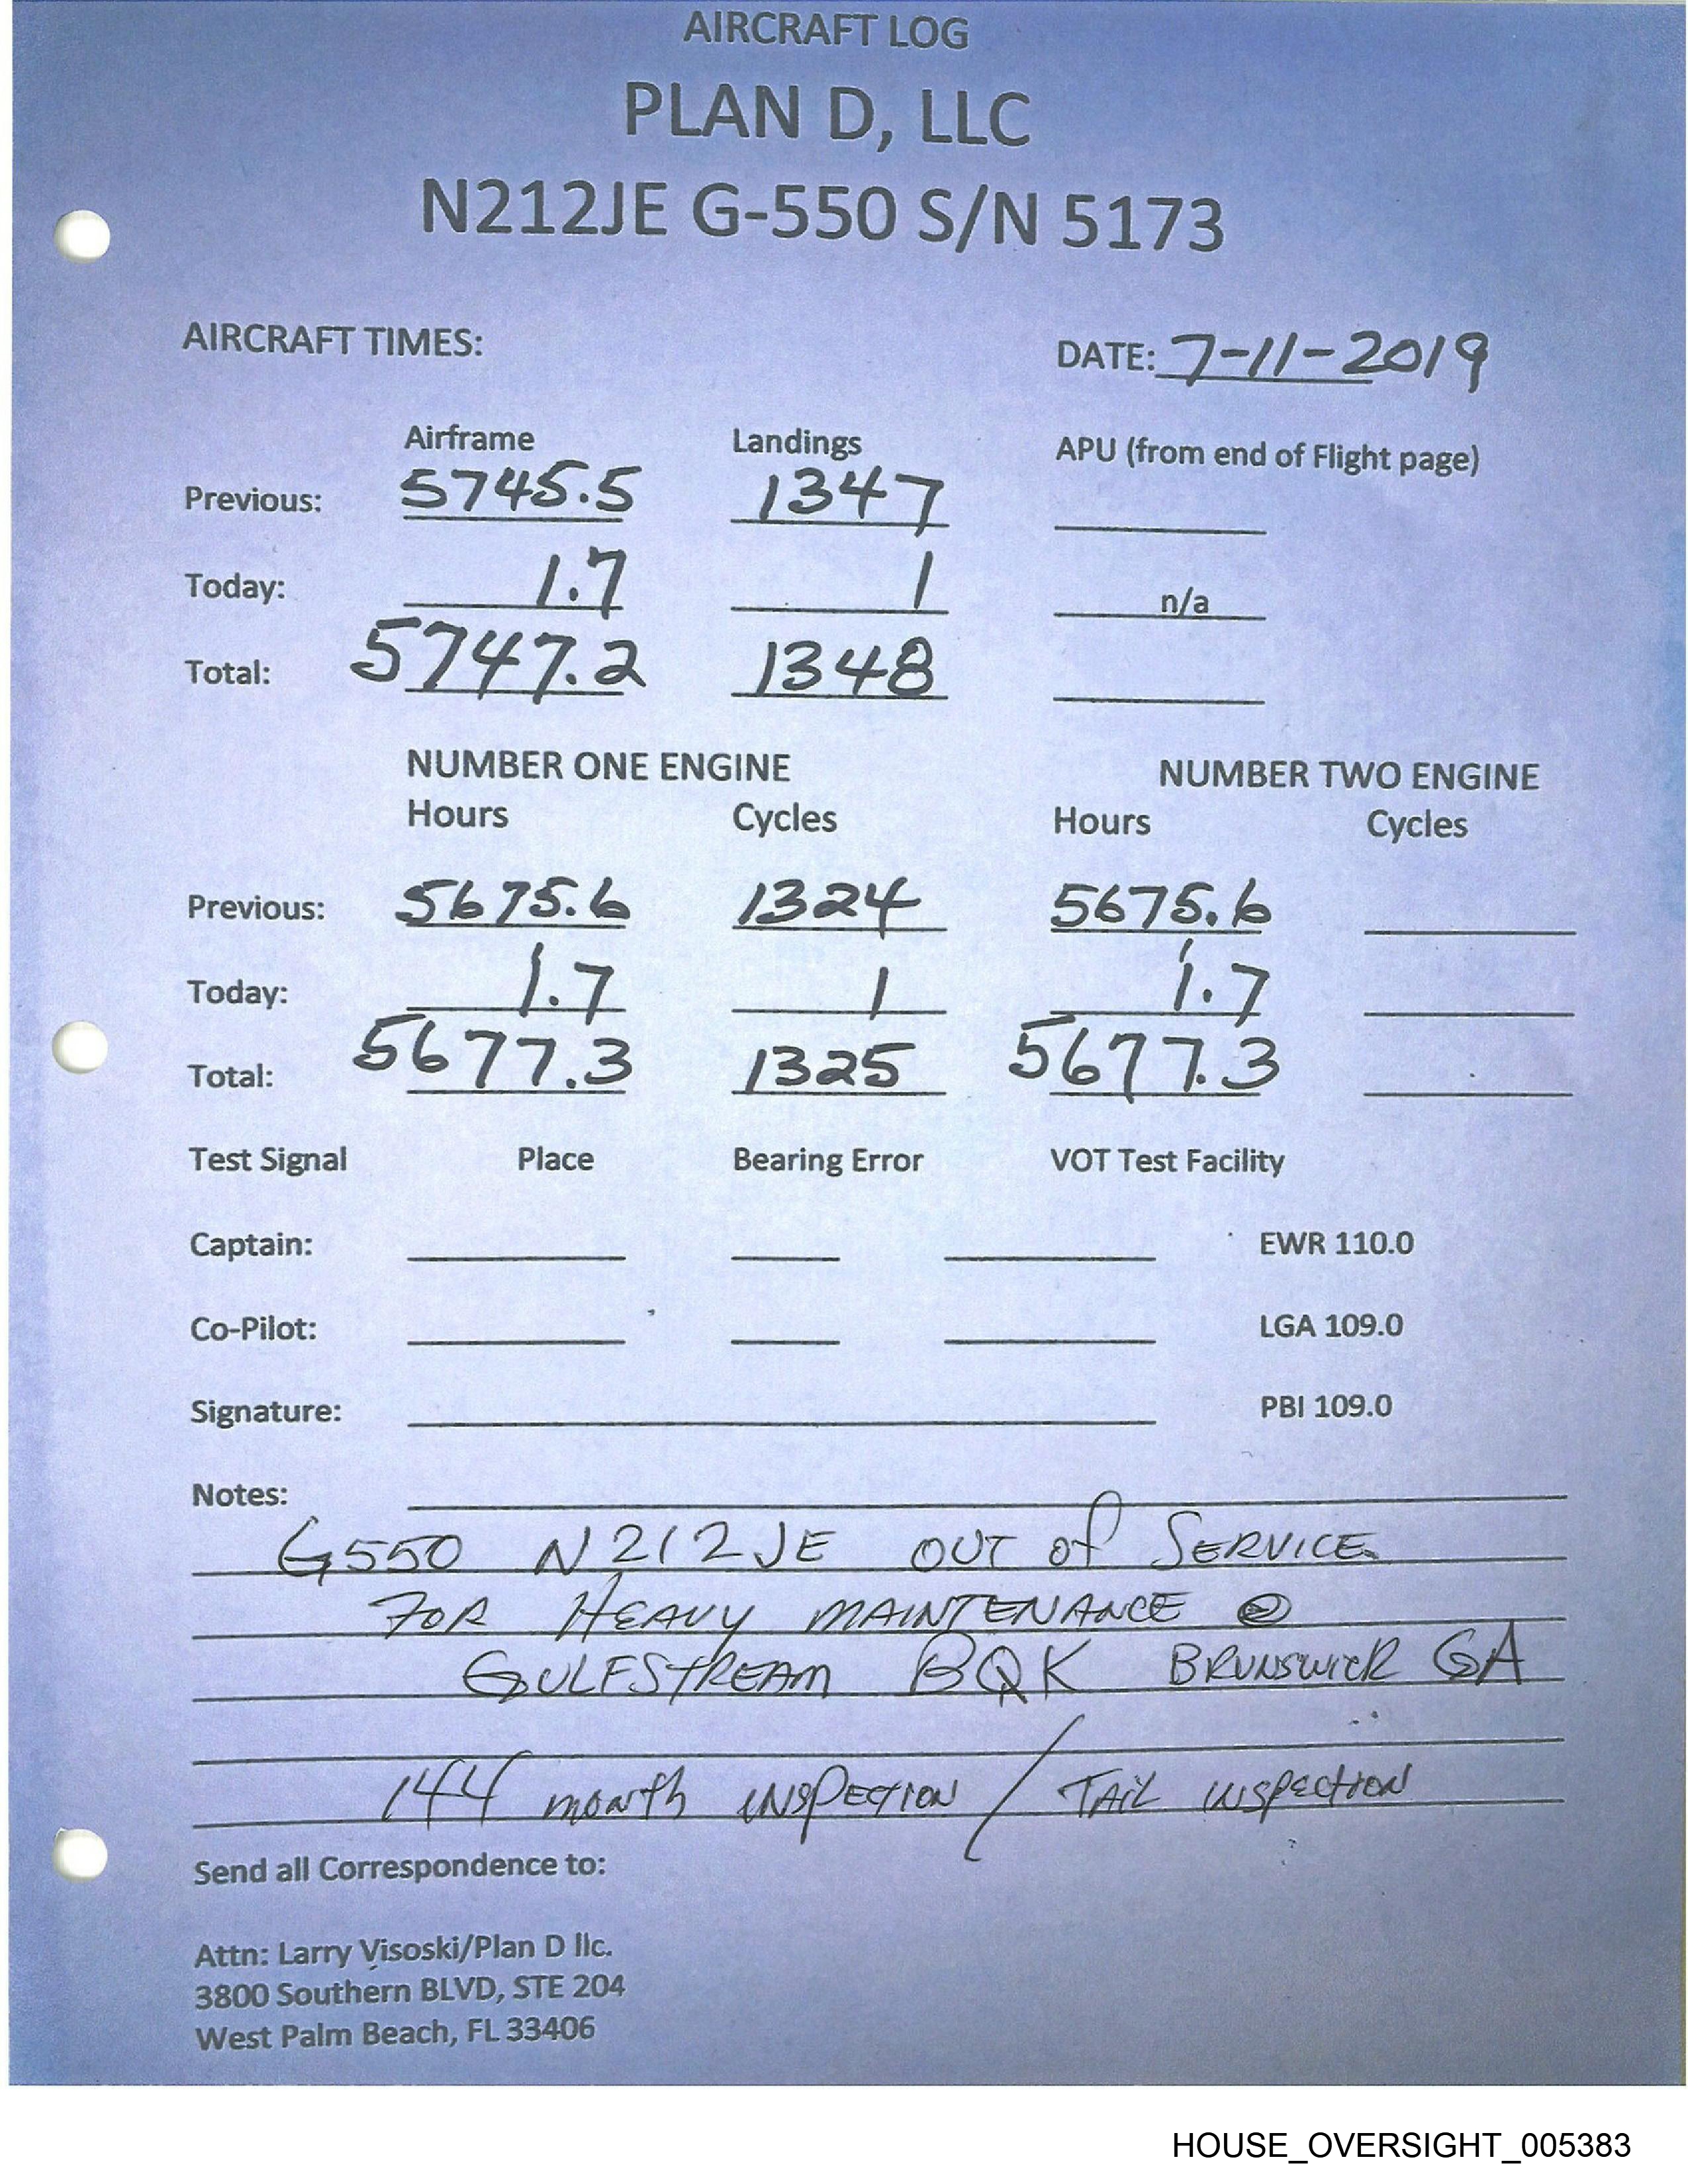 AIRCRAFT LOG
PLAN D, LLC
N212JE G-550 S/N 5173
AIRCRAFT TIMES: DATE: 7-11-2019
Airframe Landings APU (from end of Flight page)
Previous: 5745.5 1347
Today: 1.7 1 n/a
Total: 5747.2 1348
NUMBER ONE ENGINE NUMBER TWO ENGINE
Hours Cycles Hours Cycles
Previous: 5675.6 1324 5675.6
Today: 1.7 1 1.7
Total: 5677.3 1325 5677.3
Test Signal Place Bearing Error VOT Test Facility
Captain: EWR 110.0
Co-Pilot: LGA 109.0
Signature: PBI 109.0
Notes:
G550 N212JE OUT OF SERVICE
FOR HEAVY MAINTENANCE @
GULFSTREAM BQK BRUNSWICK GA
144 month inspection / Tail inspection
Send all Correspondence to:
Attn: Larry Visoski/Plan D llc.
3800 Southern BLVD, STE 204
West Palm Beach, FL 33406
HOUSE_OVERSIGHT_005383